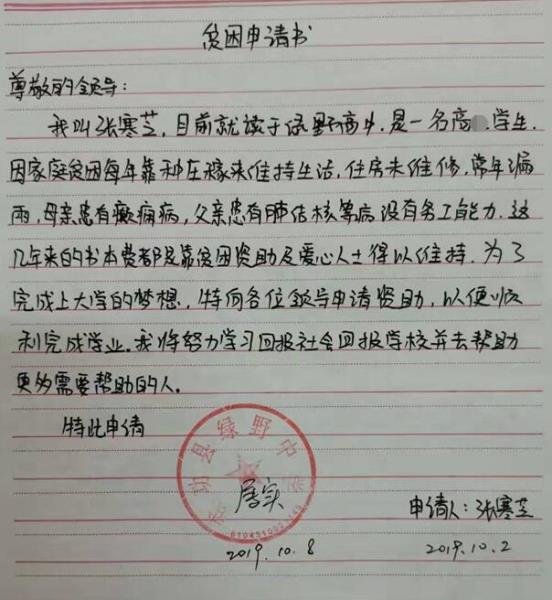 贫困申请书
尊敬的领导:
我叫张寒芝,目前就读于绿野高中,是一名高 学生,
因家庭贫困每年靠种庄稼来维持生活,住房未维修,常年漏
雨,母亲患有癫痫病,父亲患有肺结核等病没有务工能力.这
几年来的书本费都是靠贫困资助及爱心人士得以维持.为了
完成上大学的梦想,特向各位领导申请资助,以便顺
利完成学业.我将努力学习回报社会回报学校并去帮助
更多需要帮助的人.
特此申请
武功县绿野中学
属实
申请人:张寒芝
2019.10.8
2019.10.2